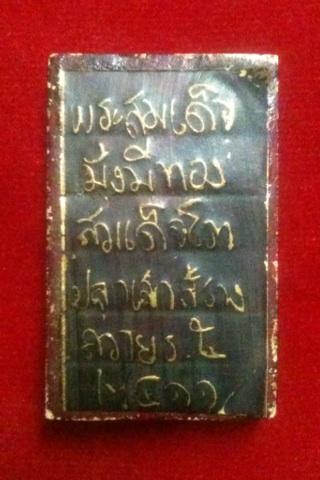 พระสมเด็จ
มั่งมีทอง
สมเด็จโต
ปลุกเสกสร้าง
ถวายร.๕
๒๔๑๑